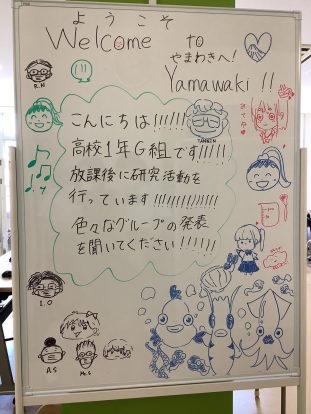 ようこそ
Welcome to
やまわきへ!
Yamawaki !!
R.N
TANKEN
こんにちは!!!!!!
高校1年G組です!!!!!
放課後に研究活動を
行っています!!!!!!!!!!!!
色々なグループの発表
を聞いてください!!!!!!
I.O
A.S